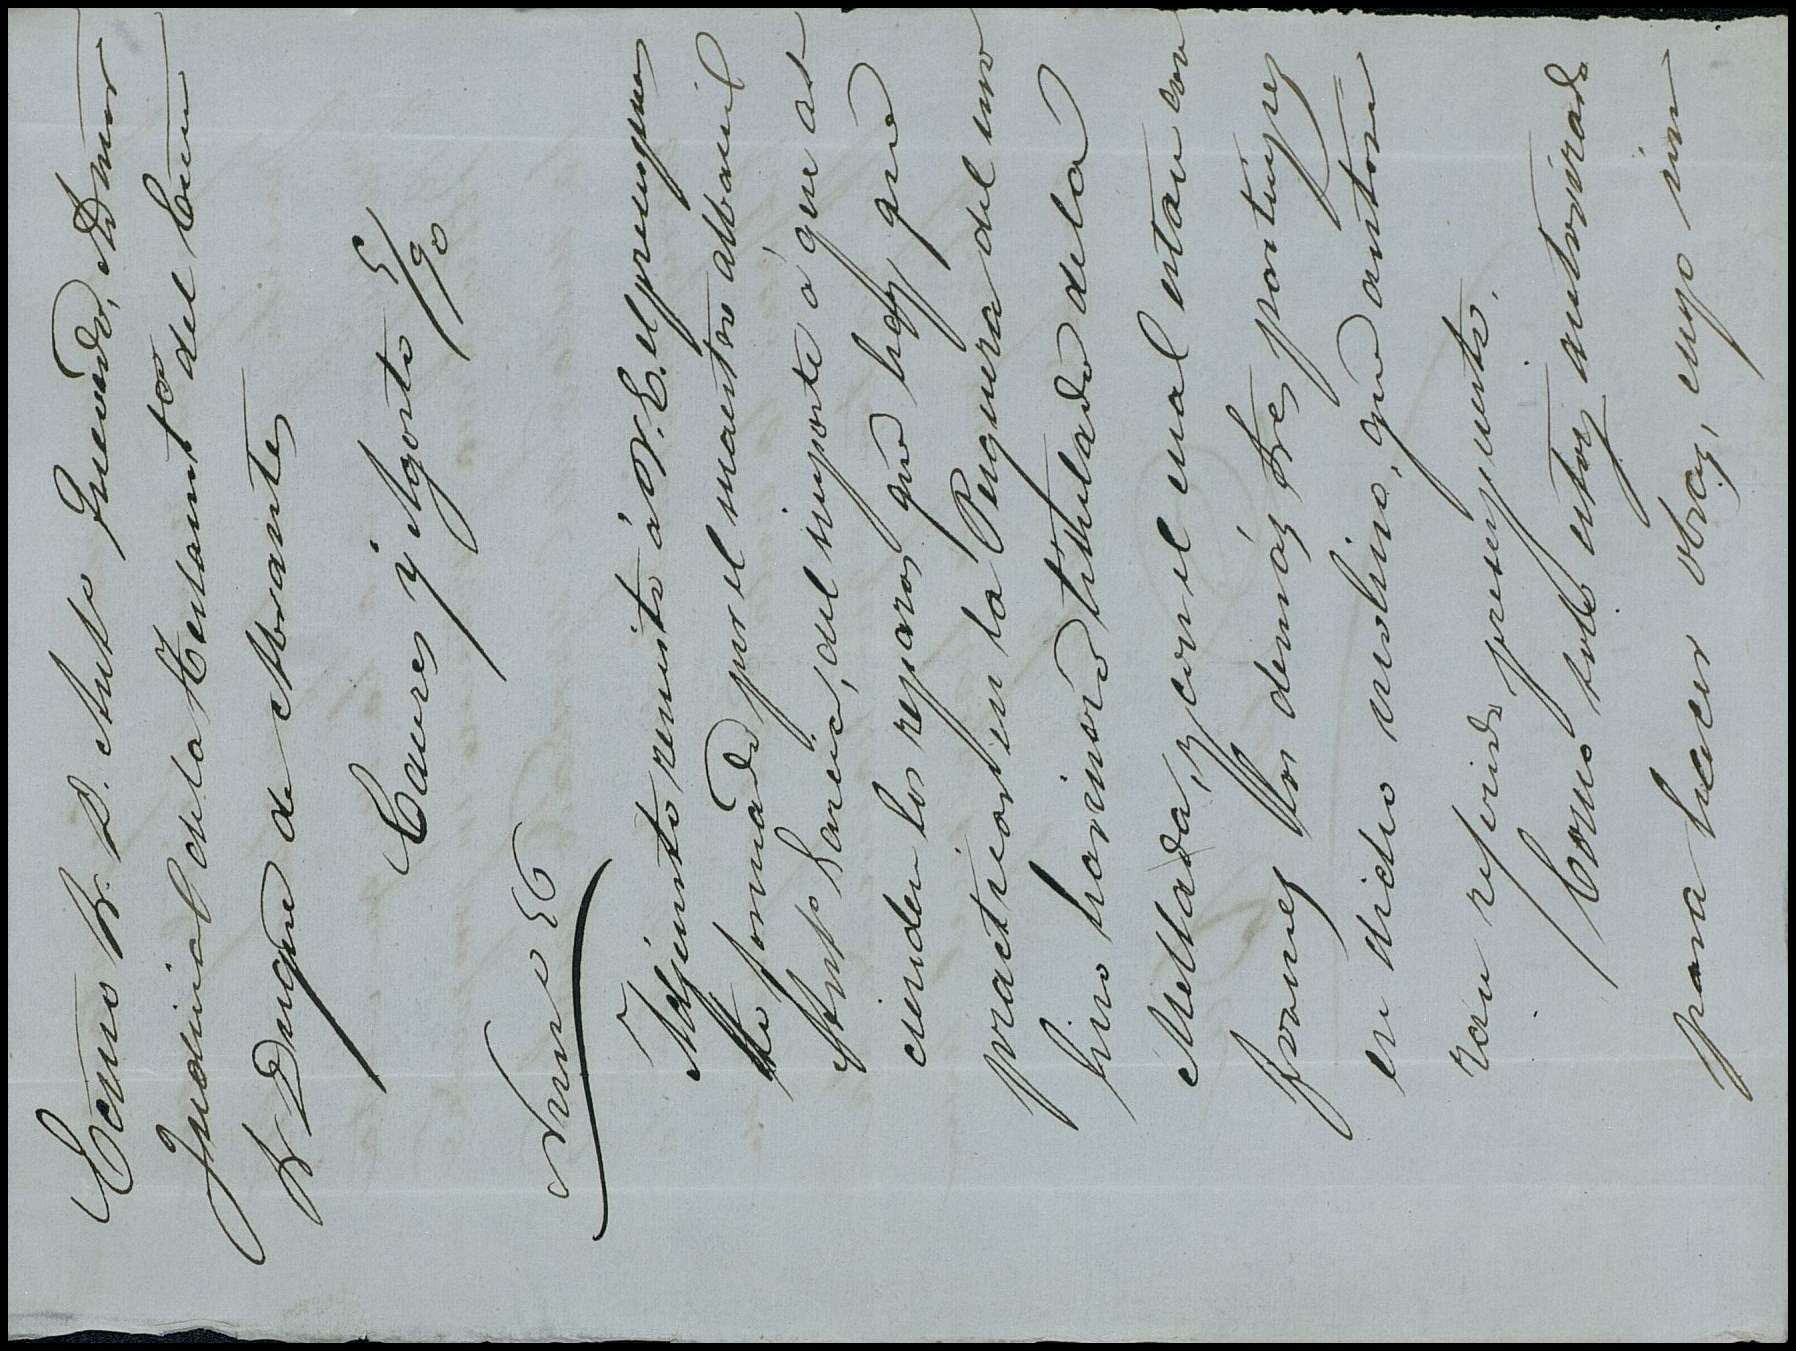 Ecmo Sr. D. Anto Quevedo, Admor
Judicial de la Testamtª del Exmo
Sr Duque de Abrantes
Caures y Agosto 5/90
Num o 26
Adjunto remito á V. E. el presupues
to formado por el maestro albanil
Antº García, del importe á que as
cienden los reparos que hay que
practicar en la Pesquera del mo
lino harinero titulado de la
Mellada, y con el cual estan con
formes los demás tres partícipes
en dicho molino, que autori
zan referido presupuesto.
Como solo estoy autorizado
para hacer obras, cuyo im